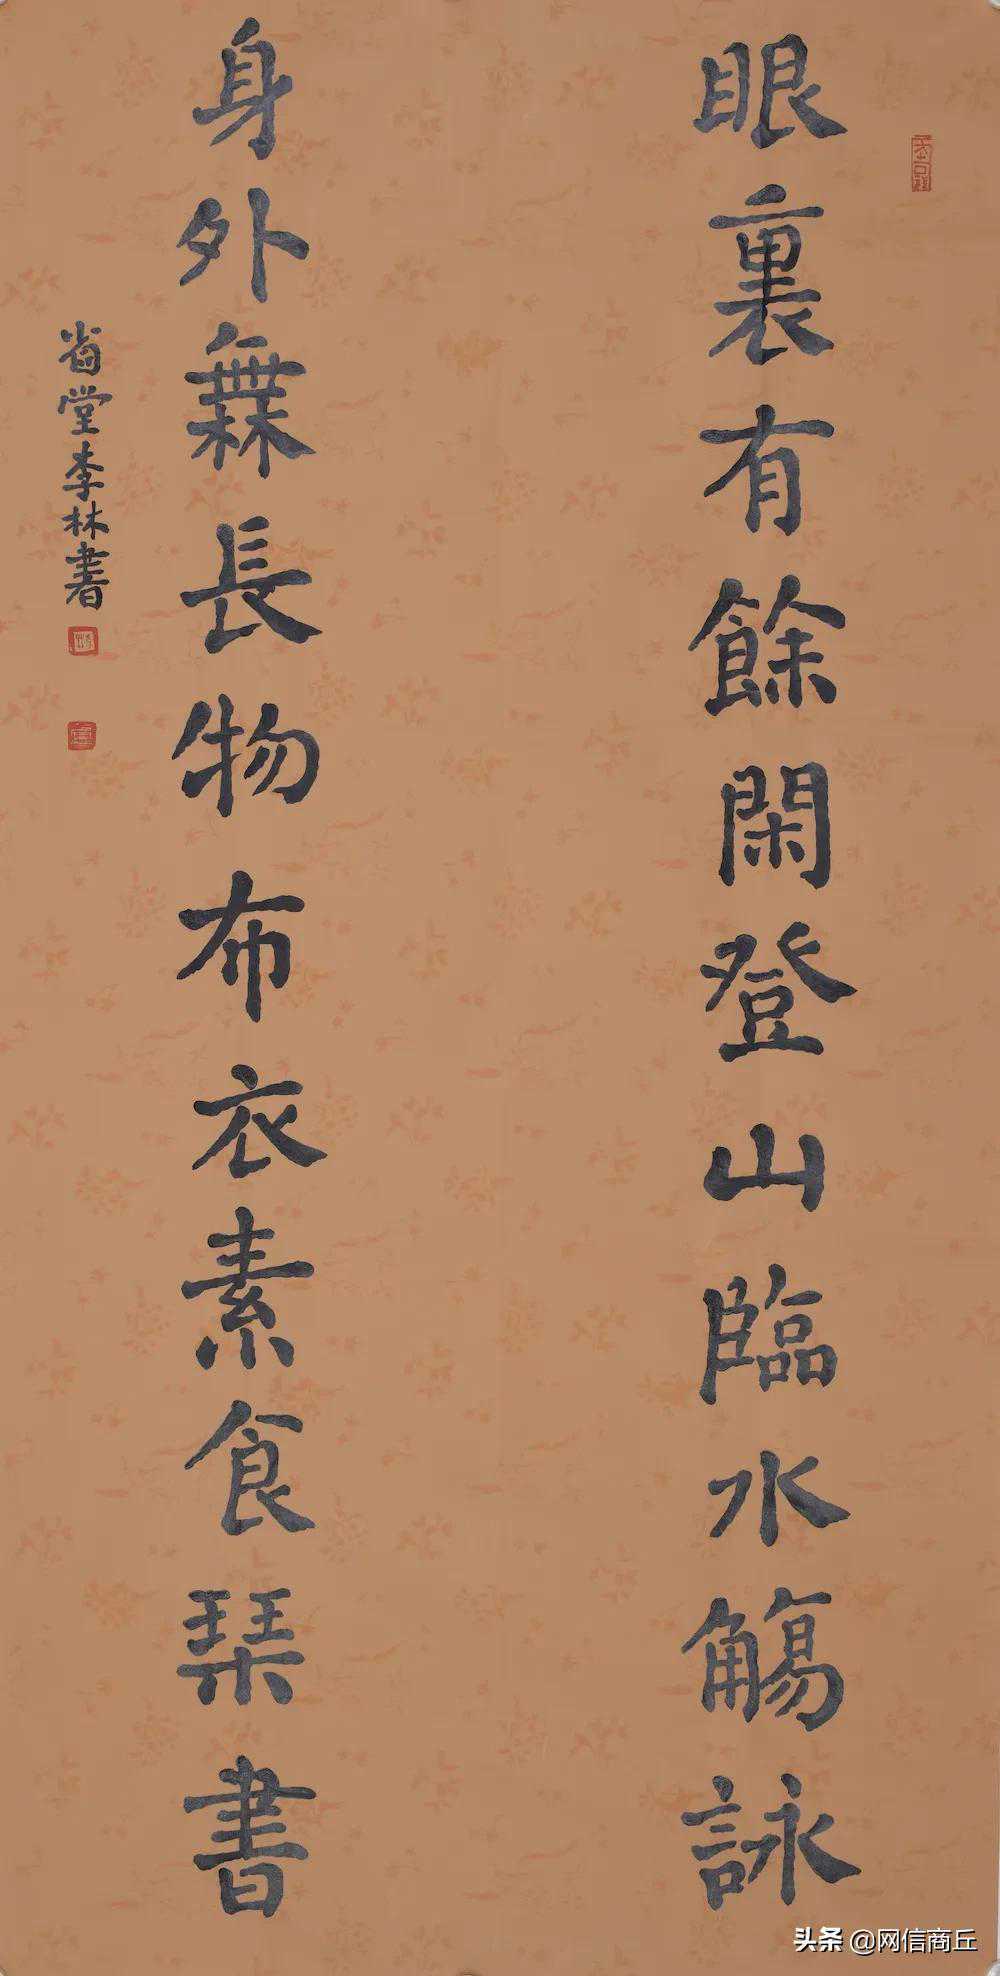 眼裏有餘閑登山臨水觴詠
身外無長物布衣素食琹書
堂李林書
头条 @网信商丘